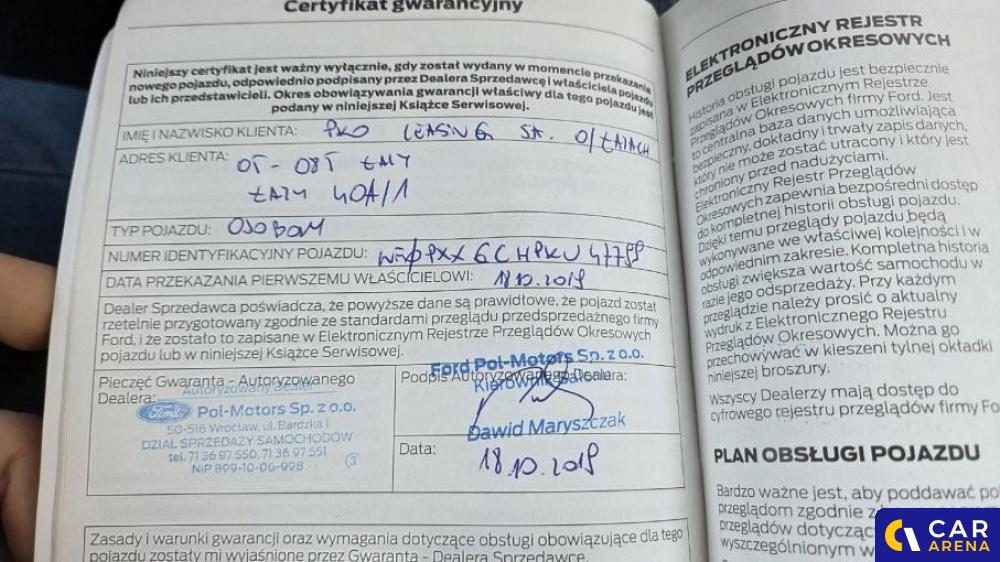 Certyfikat gwarancyjny
Niniejszy certyfikat jest ważny wyłącznie, gdy został wydany w momencie przekazania
nowego pojazdu, odpowiednio podpisany przez Dealera Sprzedawcę i właściciela pojazdu
lub ich przedstawicieli. Okres obowiązywania gwarancji właściwy dla tego pojazdu jest
podany w niniejszej Książce Serwisowej.
IMIĘ I NAZWISKO KLIENTA: PKO LEASING SA. O/ŁAZACH
ADRES KLIENTA: 05-085 ŁAZY
ŁAZY 40A/1
TYP POJAZDU: OSOBOWY
NUMER IDENTYFIKACYJNY POJAZDU:
DATA PRZEKAZANIA PIERWSZEMU WŁAŚCICIELOWI: 18.10.2019
Dealer Sprzedawca poświadcza, że powyższe dane są prawidłowe, że pojazd został
rzetelnie przygotowany zgodnie ze standardami przeglądu przedsprzedażnego firmy
Ford, i że zostało to zapisane w Elektronicznym Rejestrze Przeglądów Okresowych
pojazdu lub w niniejszej Książce Serwisowej.
Pieczęć Gwaranta - Autoryzowanego
Dealera:
Autoryzowany Dealer
Ford Pol-Motors Sp. z o.o.
50-516 Wrocław, ul. Bardzka 1
DZIAŁ SPRZEDAŻY SAMOCHODÓW
tel. 71 36 97 550, 71 36 97 551
NIP 899-10-06-998
3
Ford Pol-Motors Sp. z o.o.
Podpis Autoryzowanego Dealera:
Kierownik Salonu
Dawid Maryszczak
Data: 18.10.2019
Zasady i warunki gwarancji oraz wymagania dotyczące obsługi obowiązujące dla tego
pojazdu zostały mi wyjaśnione przez Gwaranta - Dealera Sprzedawcę.
ELEKTRONICZNY REJESTR
PRZEGLĄDÓW OKRESOWYCH
Historia obsługi pojazdu jest bezpiecznie
zapisana w Elektronicznym Rejestrze
Przeglądów Okresowych firmy Ford. Jest
to centralna baza danych umożliwiająca
bezpieczny, dokładny i trwały zapis danych,
który nie może zostać utracony i który jest
chroniony przed nadużyciami.
Elektroniczny Rejestr Przeglądów
Okresowych zapewnia bezpośredni dostęp
do kompletnej historii obsługi pojazdu.
Dzięki temu przeglądy pojazdu będą
wykonywane we właściwej kolejności i w
odpowiednim zakresie. Kompletna historia
obsługi zwiększa wartość samochodu w
razie jego odsprzedaży. Przy każdym
przeglądzie należy prosić o aktualny
wydruk z Elektronicznego Rejestru
Przeglądów Okresowych. Można go
przechowywać w kieszeni tylnej okładki
niniejszej broszury.
Wszyscy Dealerzy mają dostęp do
cyfrowego rejestru przeglądów firmy Fo
PLAN OBSŁUGI POJAZDU
Bardzo ważne jest, aby poddawać po
przeglądom zgodnie z
przeglądów dotycząc
wyszczególnionym w
CAR
ARENA